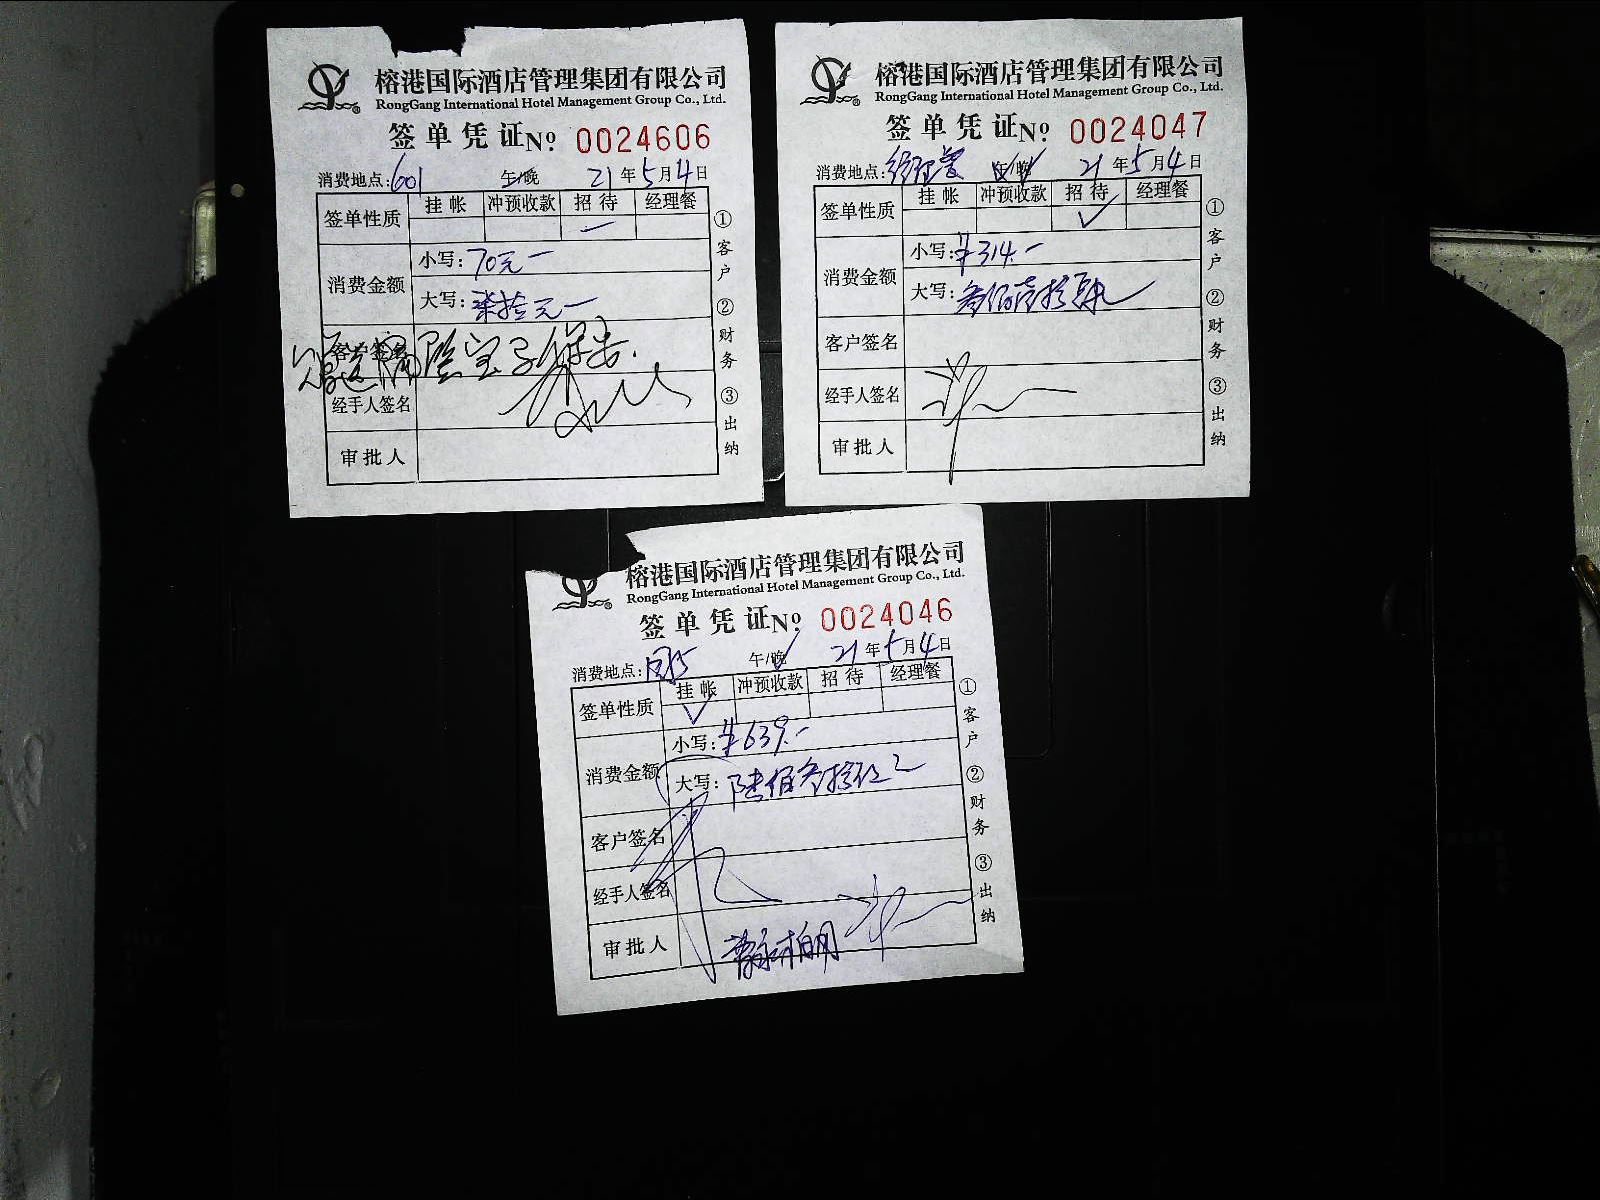 榕港国际酒店管理集团有限公司
RongGang International Hotel Management Group Co., Ltd.
签单凭证 Nº 0024606
消费地点: 601 午/晚 21年5月4日
签单性质 挂帐 冲预收款 招待 经理餐
消费金额
小写: 70元一
大写: 柒拾元一
客户签名
经手人签名
审批人
①客户 ②财务 ③出纳
榕港国际酒店管理集团有限公司
RongGang International Hotel Management Group Co., Ltd.
签单凭证 Nº 0024047
消费地点: 午/晚 21年5月4日
签单性质 挂帐 冲预收款 招待 经理餐
✓
消费金额
小写: ¥314.-
大写: 叁佰壹拾肆
客户签名
经手人签名
审批人
①客户 ②财务 ③出纳
榕港国际酒店管理集团有限公司
RongGang International Hotel Management Group Co., Ltd.
签单凭证 Nº 0024046
消费地点: 午/晚 21年5月4日
签单性质 挂帐 冲预收款 招待 经理餐
✓
消费金额
小写: ¥639.-
大写: 陆佰叁拾玖元
客户签名
经手人签名
审批人
①客户 ②财务 ③出纳